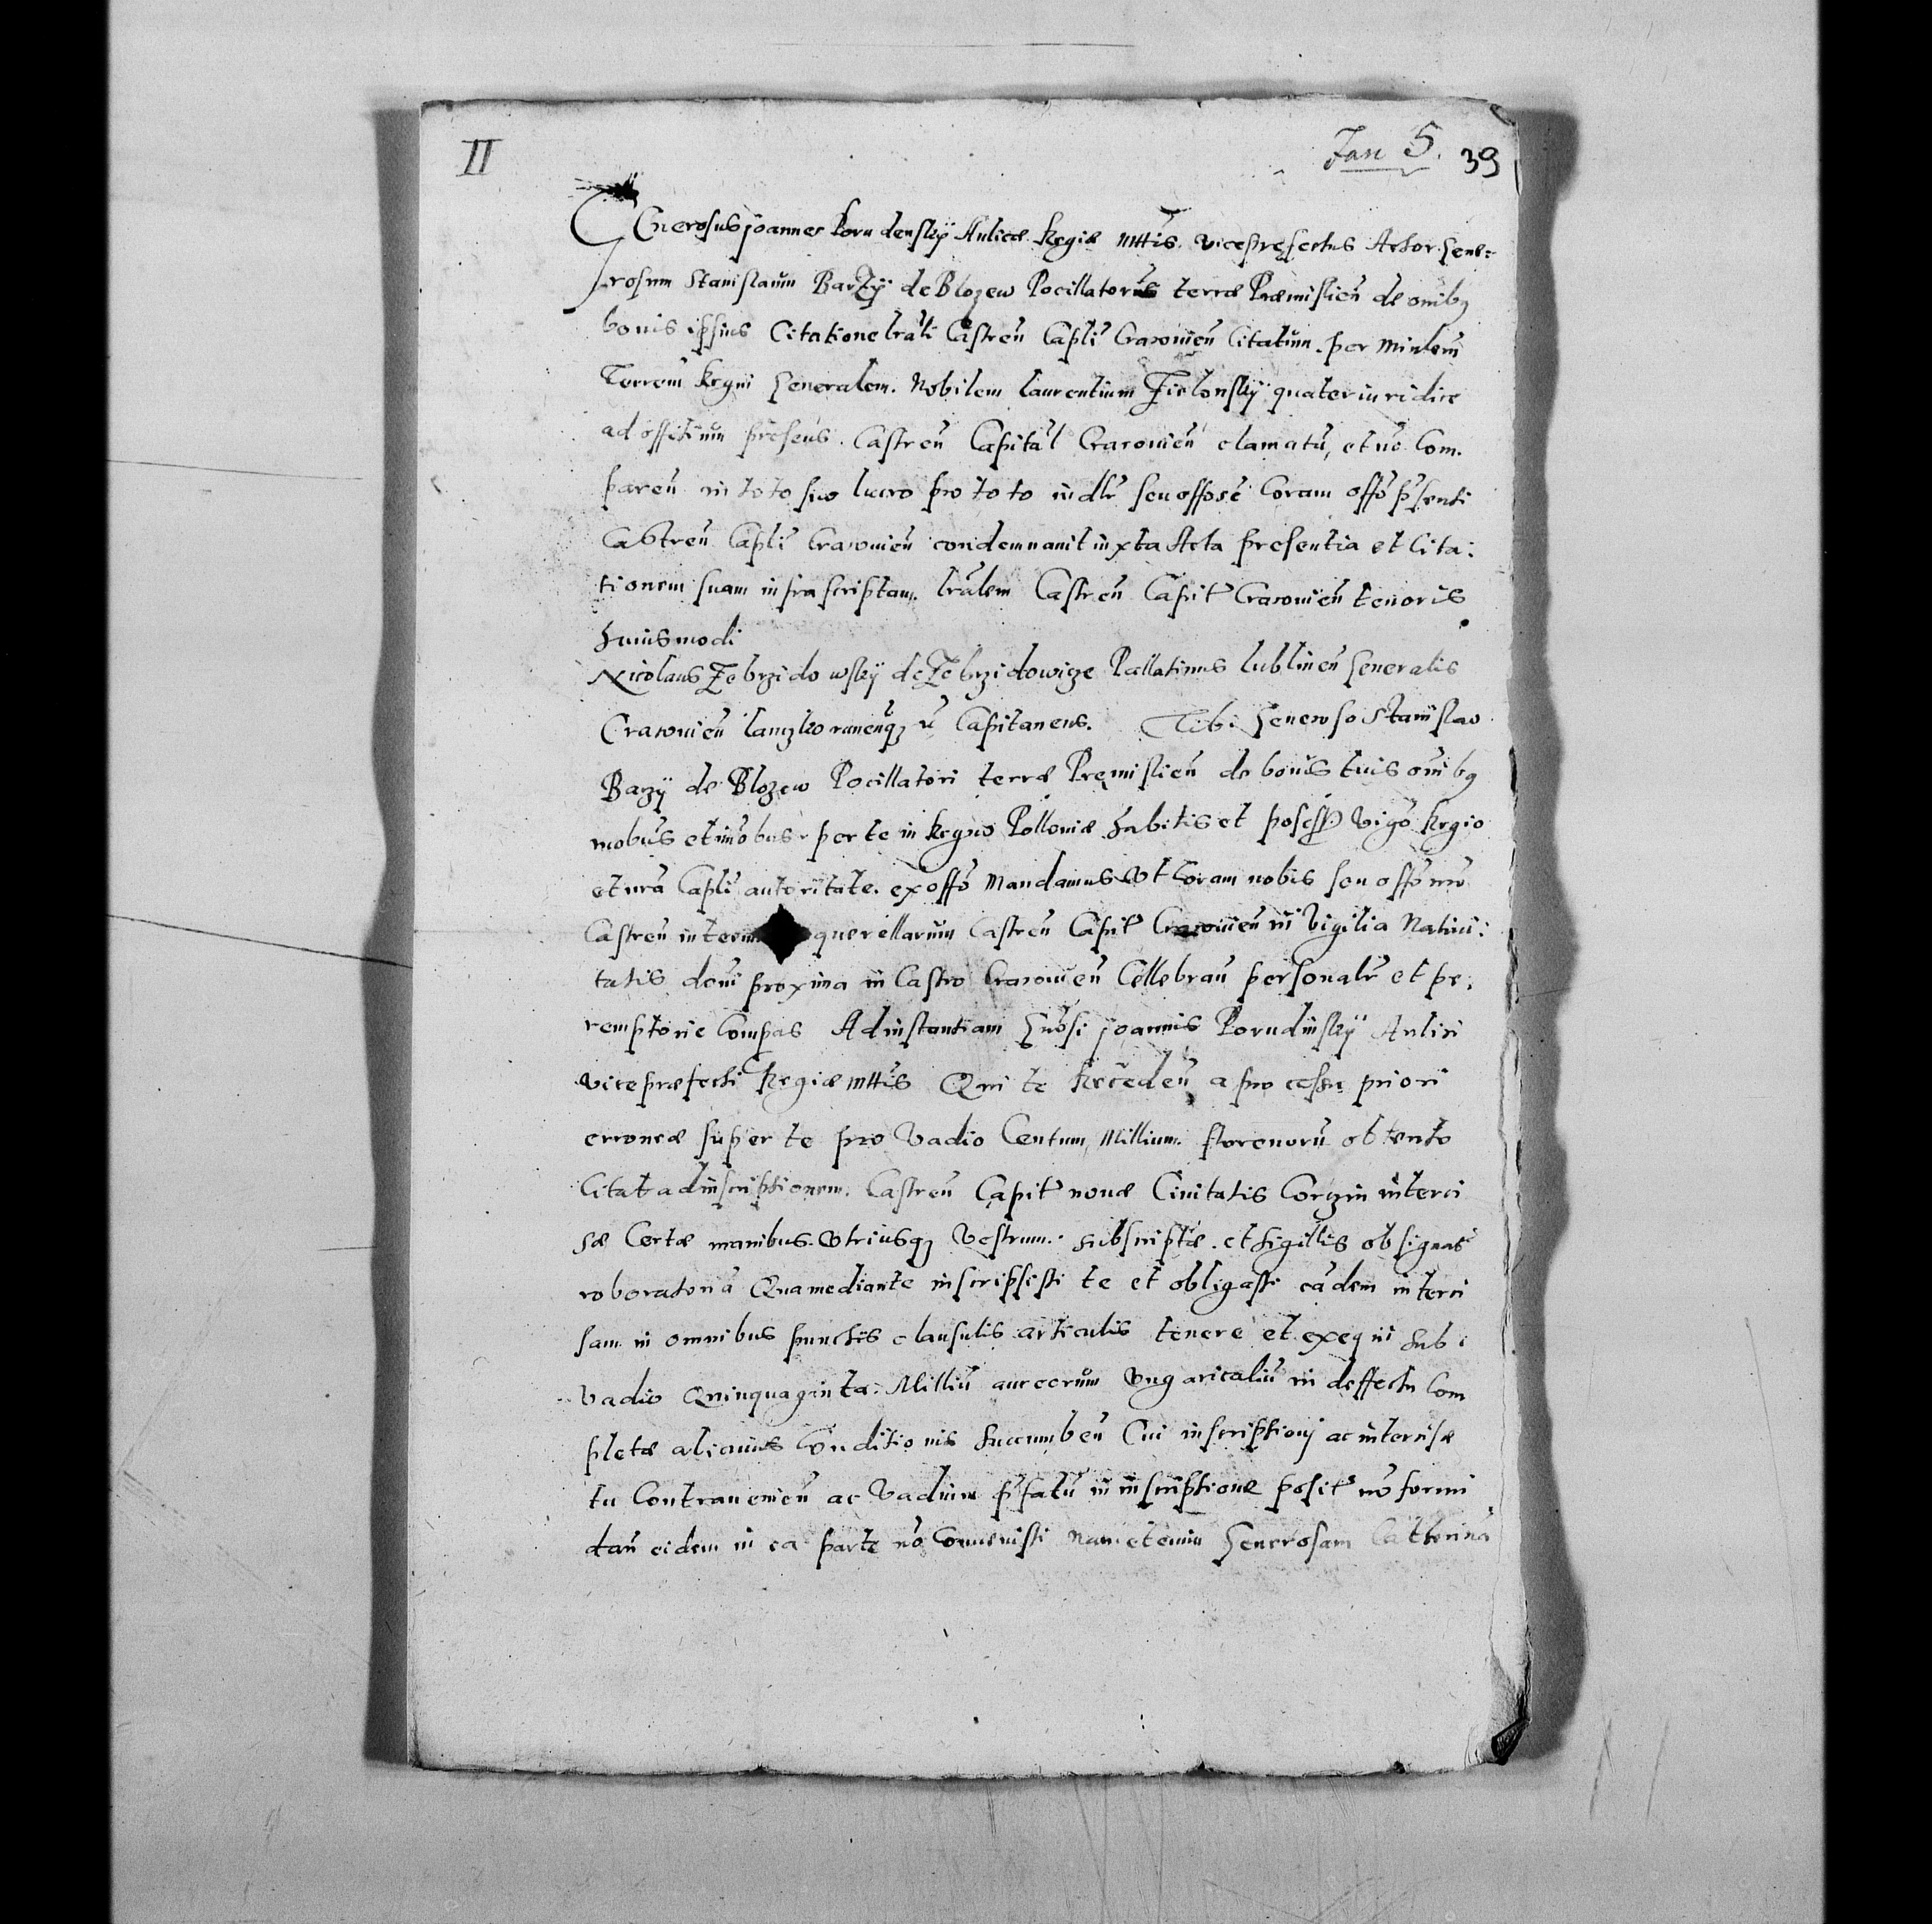 II
Jan 5. 39
Generosus joannes Porudenskÿ Aulicæ Regiæ Mttis. viceprefectus Actor Gene:
rosum Stanislaum Barzÿ de Blozew Pocillatorem terræ Præmislien̄ de om̄ibq
bonis ipsius Citatione lr̄ali Castren̄ Capl̄i Cracouien̄ Citatum. per Min̄lem
Terren̄ Regni Generalem. Nobilem laurentium Zielonskÿ quater iuridice
ad offitium pr̄esens. Castren̄ Capital̄ Cracouien̄ clamatū, et nō Com.
paren̄ in toto suo lucro pro toto iudlr̄ seu offosē Coram offō p̄senti
Castren̄ Capl̄i Cracouien̄ condemnauit iuxta Acta presentia et Cita:
tionem suam infrascriptam. lr̄alem Castren̄ Capit Cracouien̄ tenoris
huiusmodi
Nicolaus Zebrzidowskÿ de Zebrzidowize Pallatinus lublinen̄ Generalis
Cracouien̄ lanczkorunen̄q Capitaneus. Tibi Generoso Stanislao
Barzÿ de Blozew Pocillatori terræ Pręmislien̄ de bonis tuis om̄ibq
mobūs et im̄obus per te in Regno Polloniæ habitis et posess Vigō Regio
et nr̄a Capl̄i autoritate. ex offō Mandamus Vt Coram nobis seu offō nr̄o
Castren̄ in term querellarum Castren̄ Capit Cracouien̄ in Vigilia Natiui:
tatis dom̄i proxima in Castro Cracouien̄ Cellebran̄ personalr̄ et pe:
remptorie Compas Ad instantiam Gn̄osi joannis Porudinskÿ Aulici
viceprefecti Regiæ Mttis Qui te Rec̄eden̄ a processu priori
erroneæ super te pro Vadio Centum Millium. florenorū obtento
Citat ad inscriptionem. Castren̄ Capit nouæ Ciuitatis Corczin interci
sæ Certæ manibus. Vtriusq Vestrum. subscriptæ. et sigillis obsignat
roboratoriā Qua mediante inscripsisti te et obligasti eādem interci
sam in omnibus punctis clausulis articulis tenere et exequi sub
Vadio Quinquaginta Milliū aureorum Vngaricaliū in deffectu Com
pletæ alicuius Conditionis succumben̄ Cui inscriptionj ac intercisæ
tu Contraueniēn ac Vadium p̄fatū in inscriptione posit nō formi
dan̄ eidem in ea parte nō Conuenisti nam etenim Generosam Catherinā